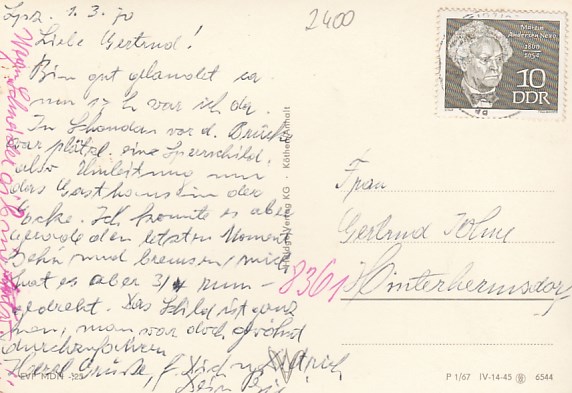 Lpz. 1.3.70
Liebe Gertrud!
Bin gut gelandet ca.
um 17 h war ich da.
In Schandau vor d. Brücke
war plötzl. eine Sperrschild.
also Umleitung um
das Gasthaus in der
Ecke. Ich konnte es aber
gerade den letzten Moment
sehn und bremsen, mich
hat es aber 3/4 rum-
gedreht. Das Schild ist ganz
neu, man war doch gewohnt
durchzufahren
Herzl. Grüsse, f. Dich
Dein
2400
Martin
Andersen Nexö
1869
1954
10
DDR
Frau
Gertrud
8361 Hinterhermsdorf
Verlag KG · Köthen/Anhalt
EVP MDN -,25
P 1/67 IV-14-45 6544